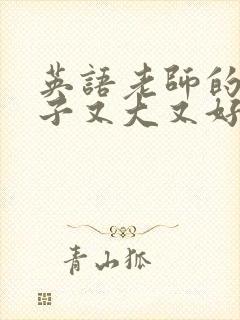 英語老師的
子又大又好
青山狐